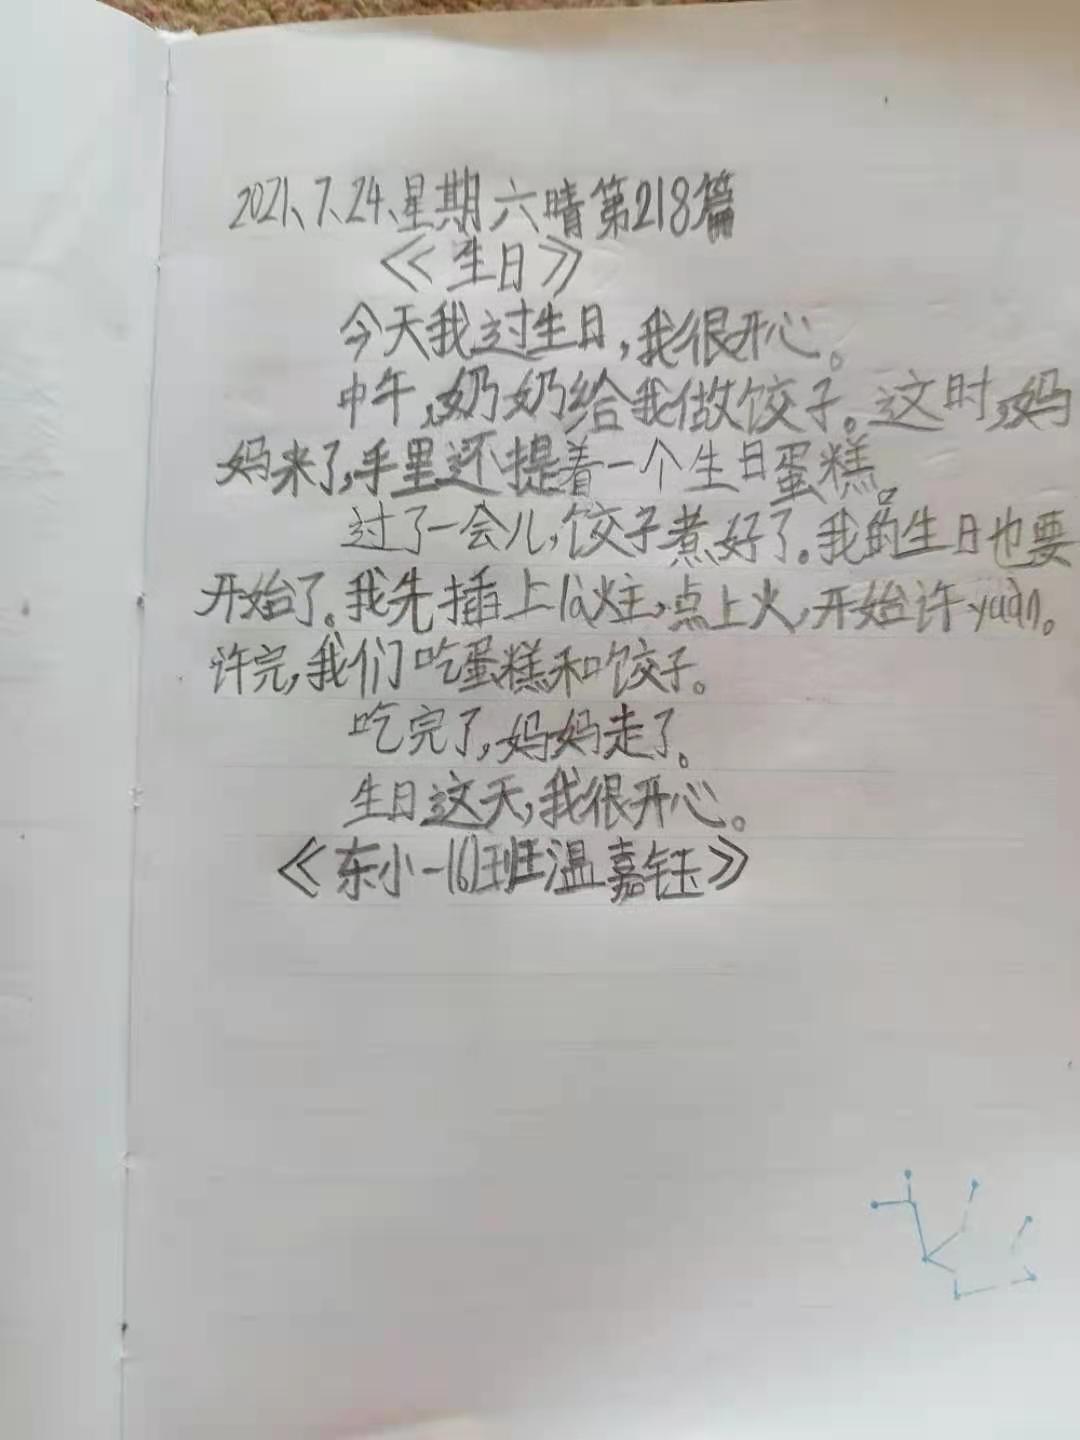 2021、7、24、星期六晴第218篇
《生日》
今天我过生日,我很开心。
中午,奶奶给我做饺子。这时,妈
妈来了,手里还提着一个生日蛋糕。
过了一会儿,饺子煮好了。我的生日也要
开始了。我先插上là炷,点上火,开始许yuàn。
许完,我们吃蛋糕和吃饺子。
吃完了,妈妈走了。
生日这天,我很开心。
《东小一(6)班温嘉钰》